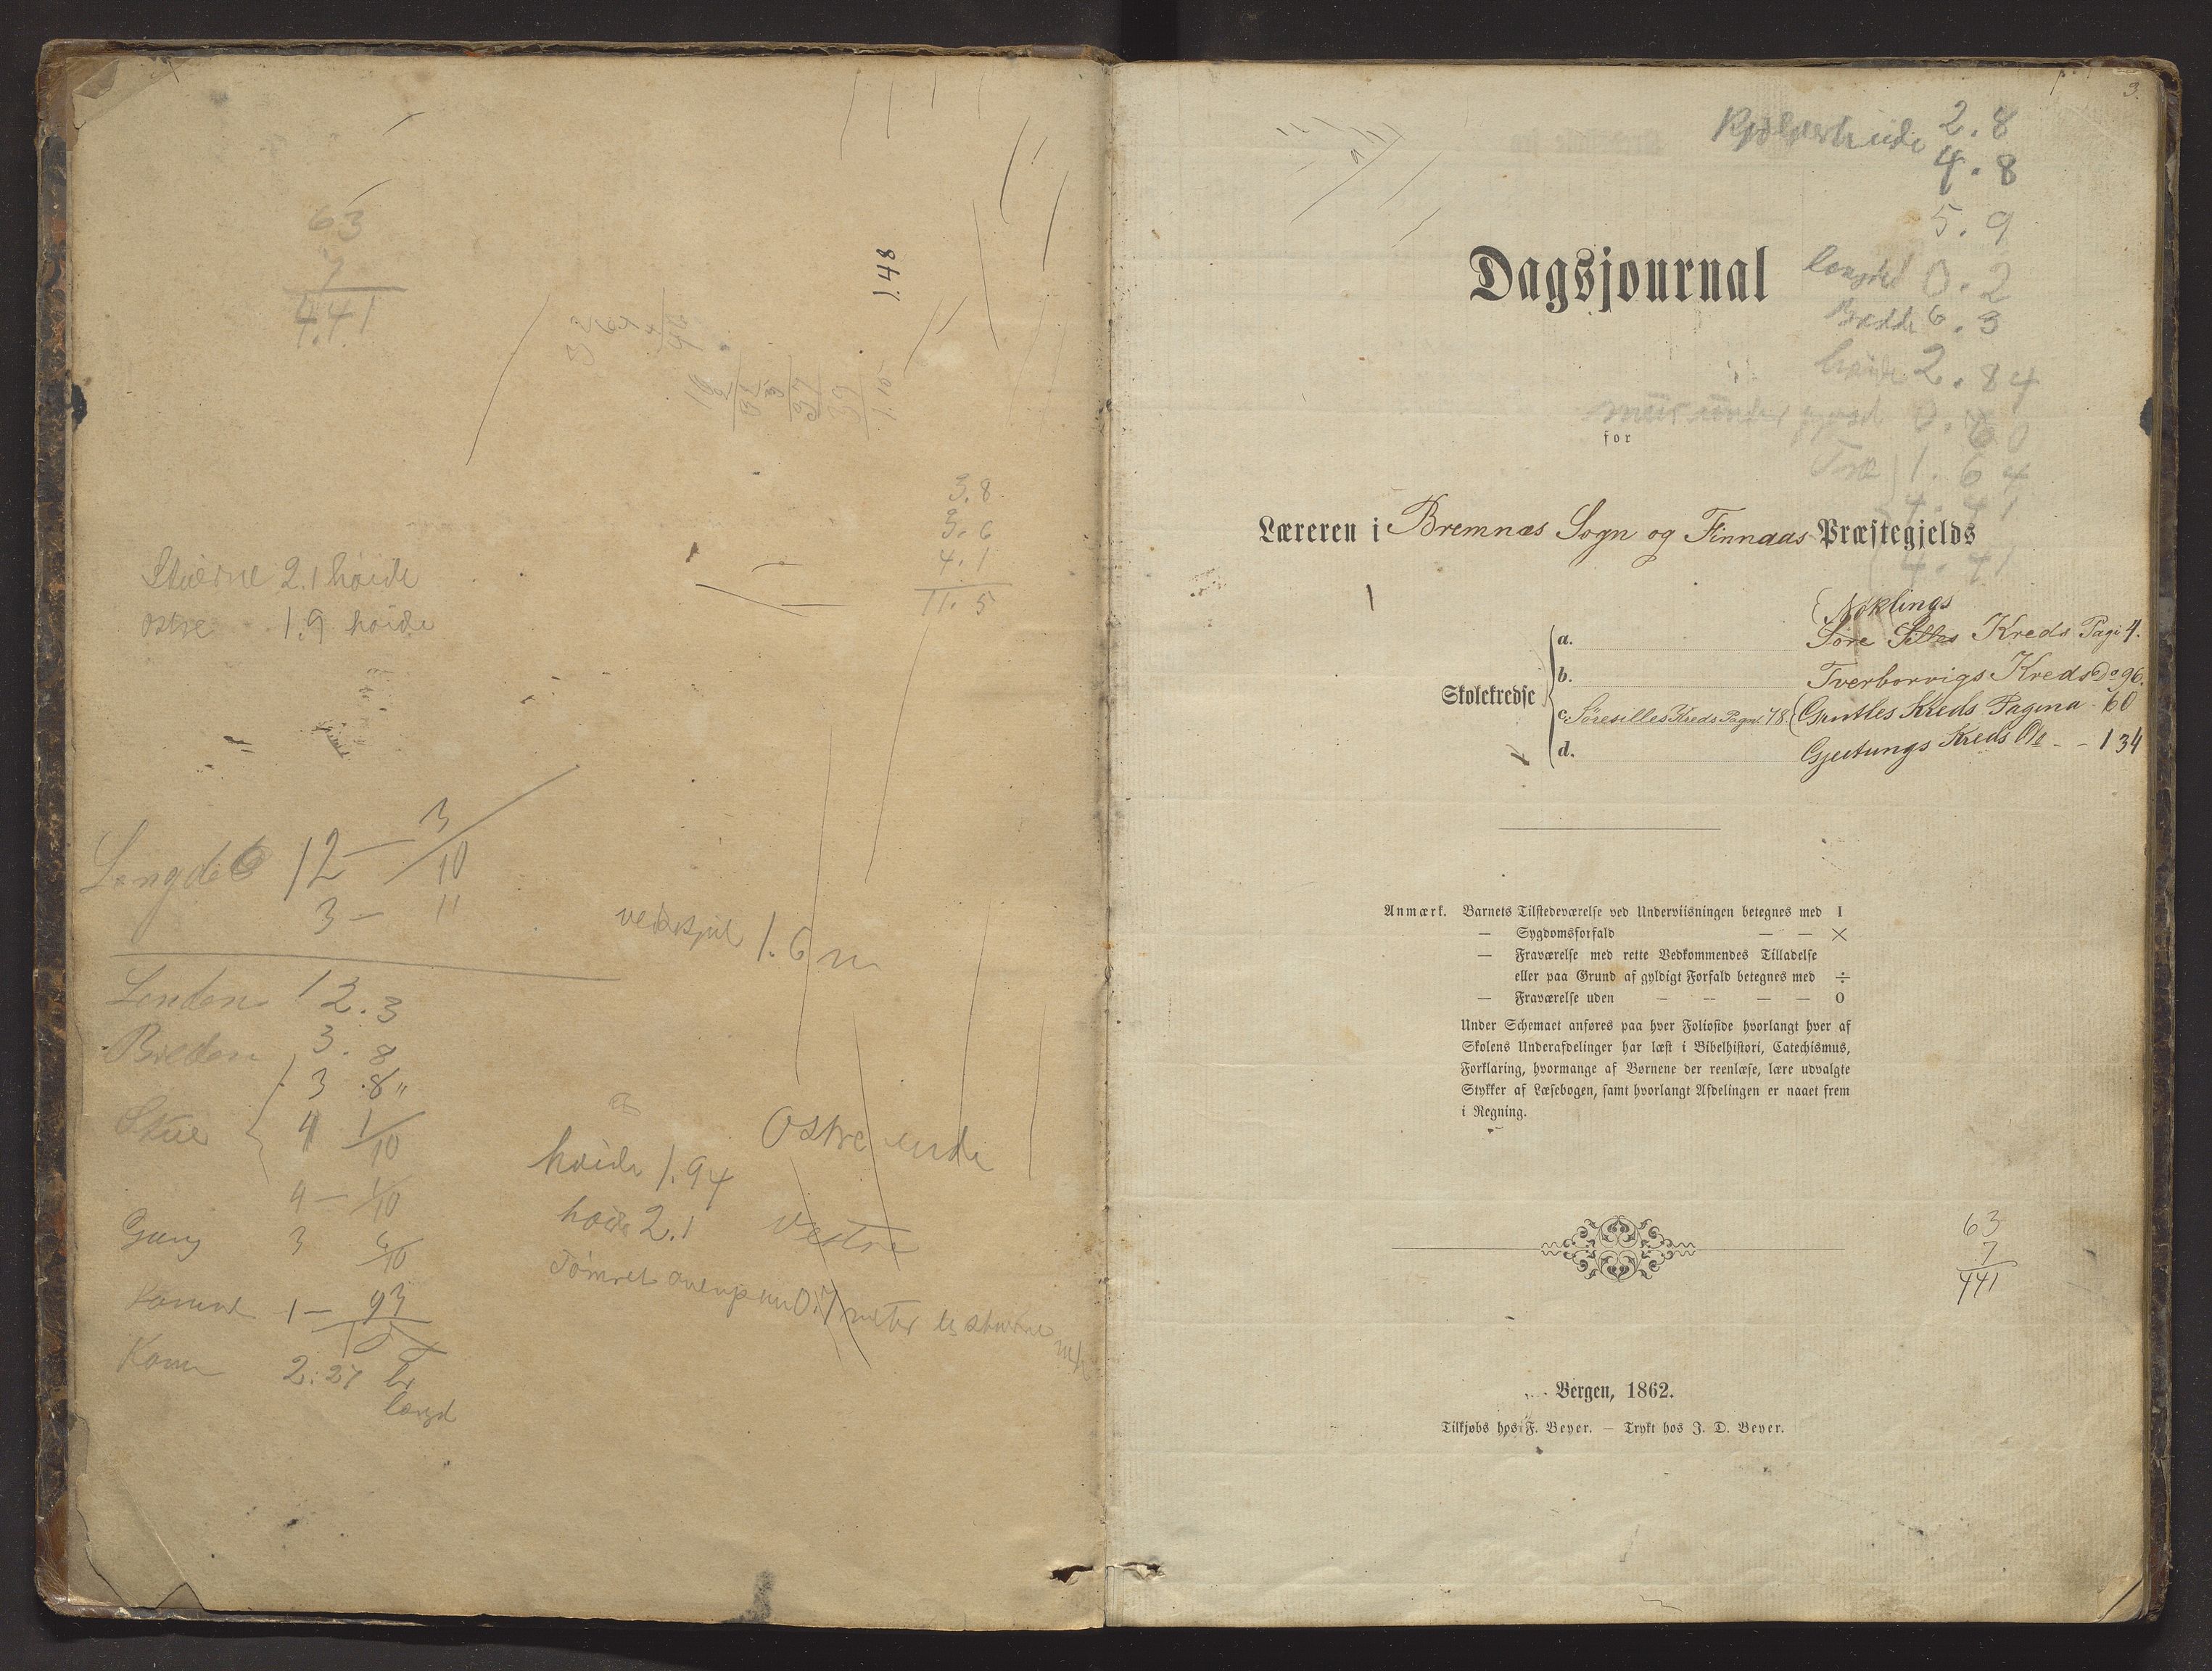 63
7
4.41
1.48
3.8
3.6
4.1
11.5
Stuerne 2.1 høide
østre 1.9 høide
Lengde 12 — 3/10
3 — "
vedskjul 1.6 m
Lenden 12.3
Breden 3.8
3.8"
Stue 4 1/10
4 — 1/10
Gang 3 6/10
1 — 93
2.27 br
længd
Østre ende
høide 1.94
høide 2.1 Vestre
3.
2.8
4.8
5.9
længde 0.2
Bredde 6.3
høide 2.84
1.64
4.41
4.41
Dagsjournal
for
Læreren i Bremnæs Sogn og Finnaas Præstegjelds
Skolekredse
Nøklings
a. Søre Silles Kreds Pagi 4.
b. Tverborvigs Kreds Do 96.
c. Søresilles Kreds Pagn. 78. Kreds Pagina 60
d. Gjeitungs Kreds Do - - 134
Anmærk. Barnets Tilstedeværelse ved Underviisningen betegnes med I
— Sygdomsforfald — — ×
— Fraværelse med rette Vedkommendes Tilladelse
eller paa Grund af gyldigt Forfald betegnes med ÷
— Fraværelse uden — — — — 0
Under Schemaet anføres paa hver Folioside hvorlangt hver af
Skolens Underafdelinger har læst i Bibelhistori, Catechismus,
Forklaring, hvormange af Børnene der reenlæse, lære udvalgte
Stykker af Læsebogen, samt hvorlangt Afdelingen er naaet frem
i Regning.
63
7
441
Bergen, 1862.
Tilkjøbs hos F. Beyer. — Trykt hos J. D. Beyer.